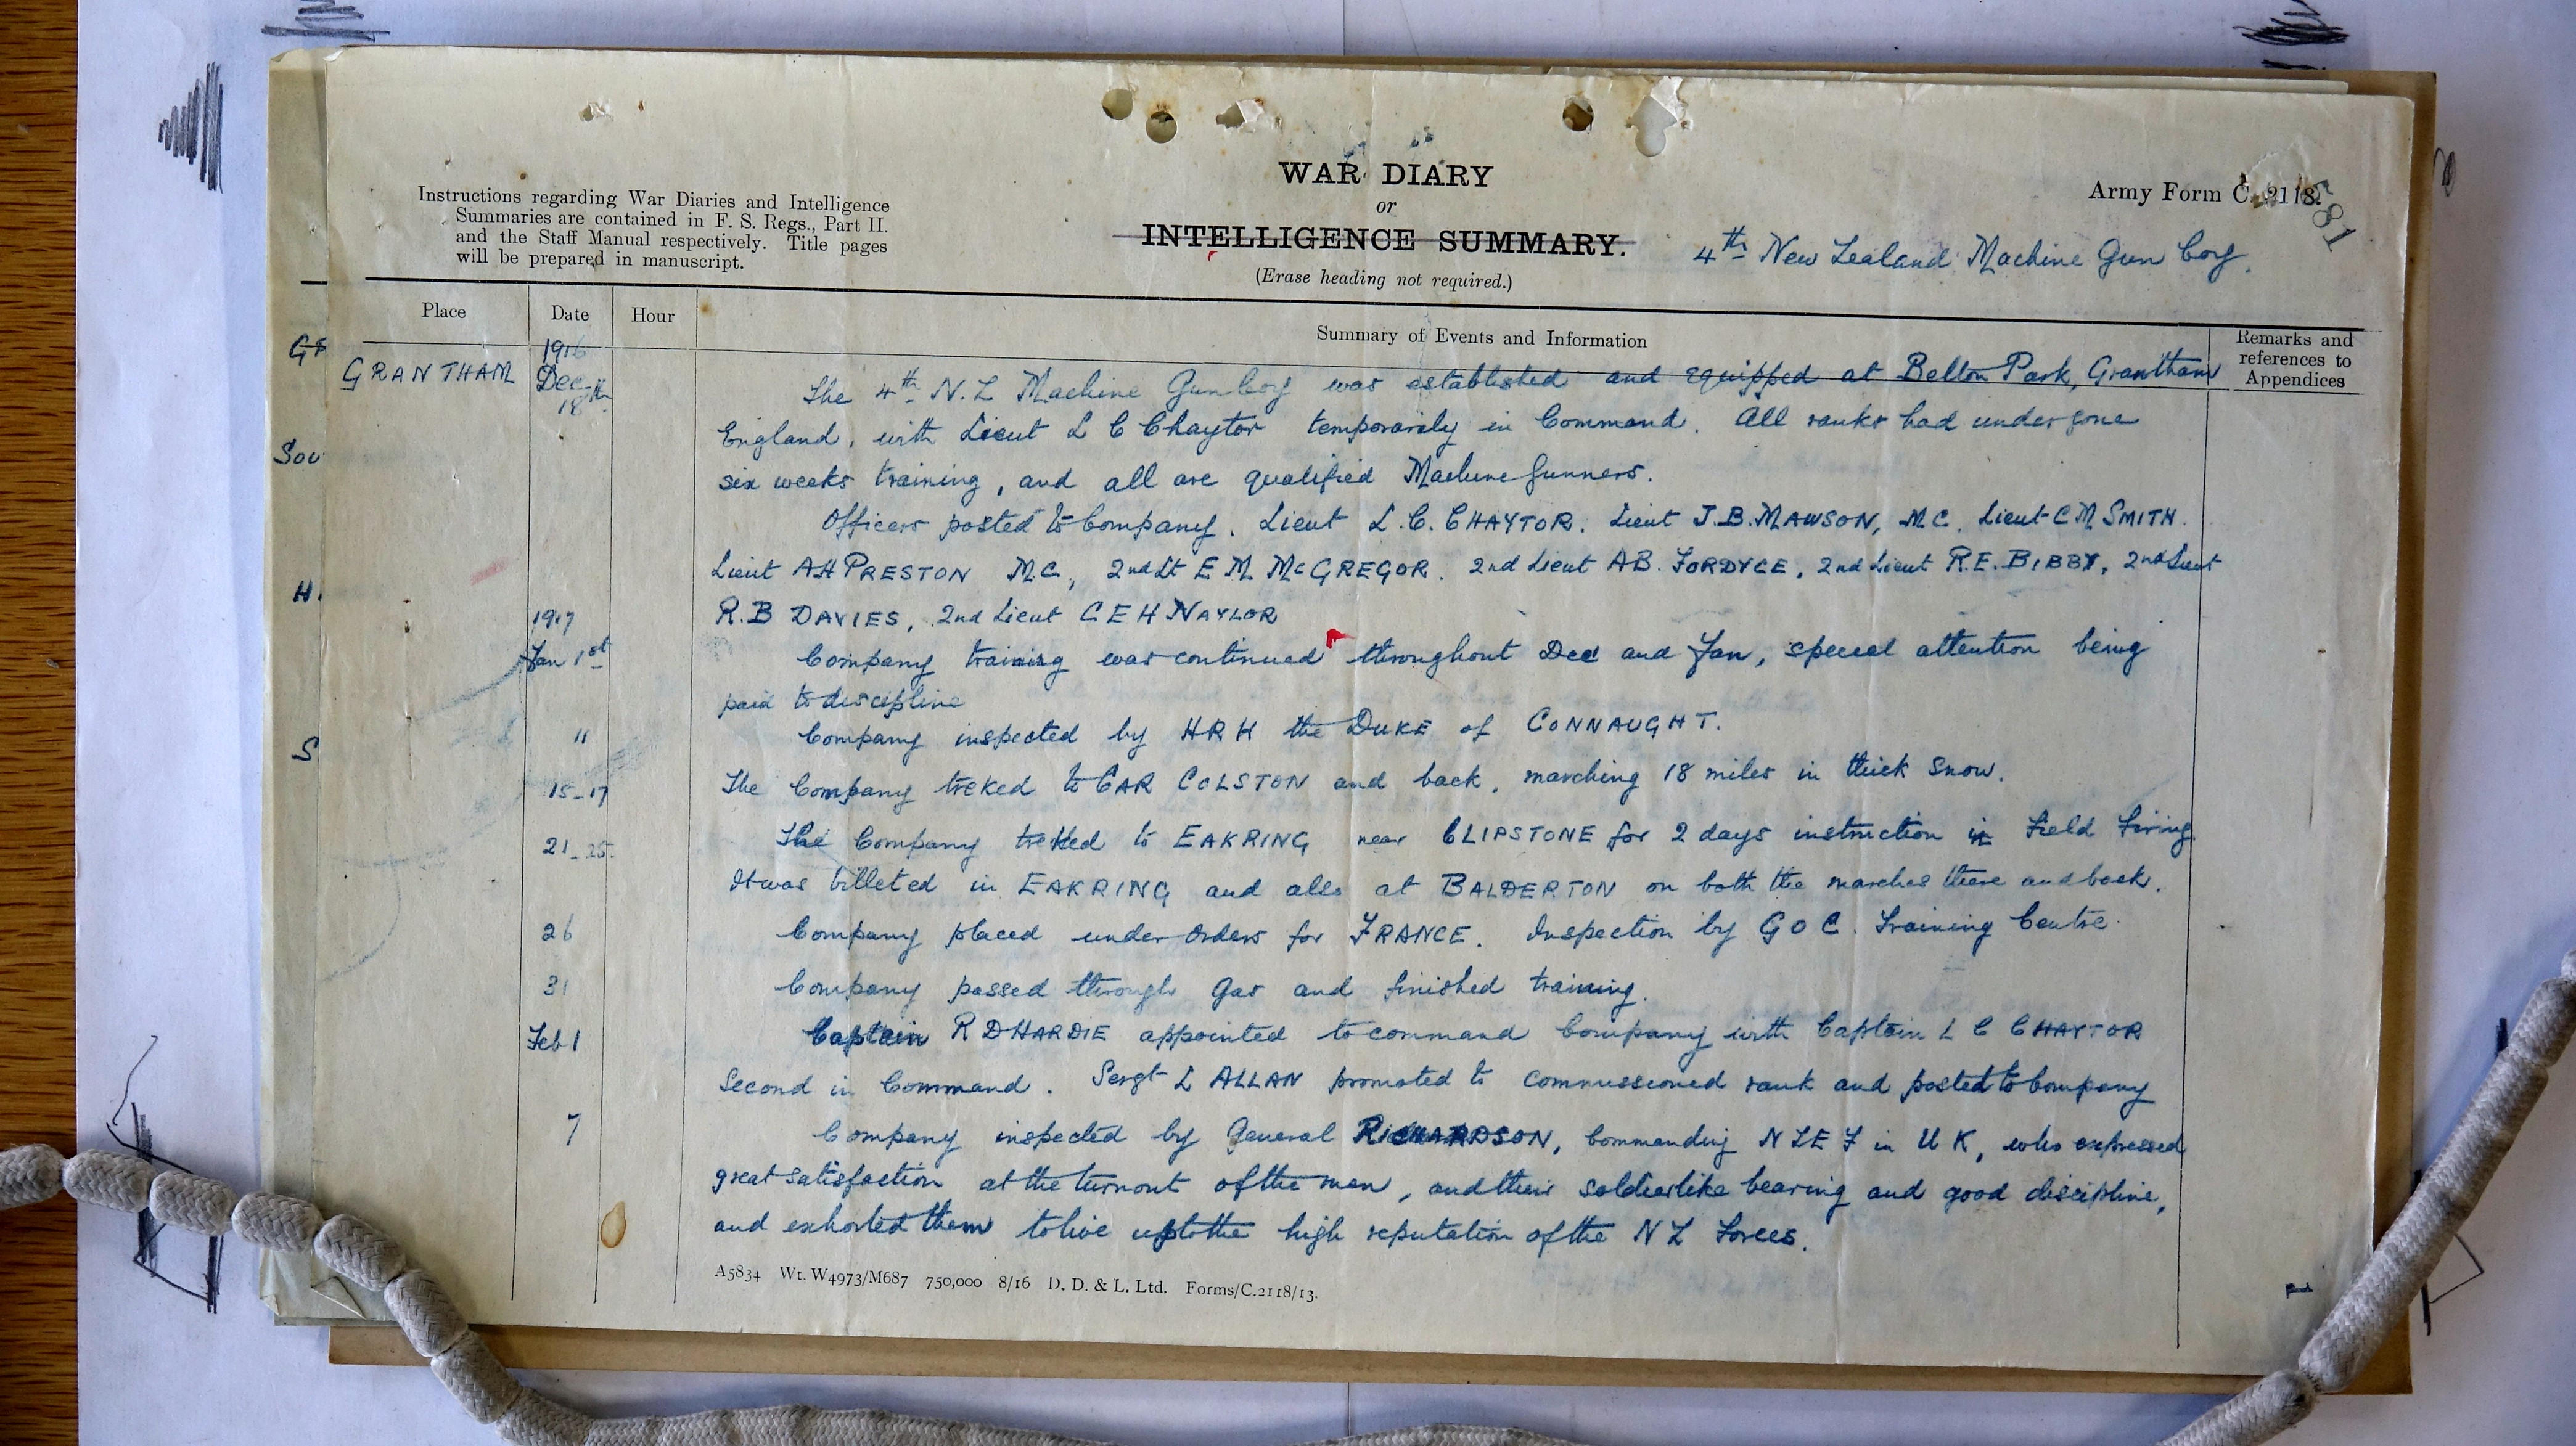 WAR DIARY
or
INTELLIGENCE SUMMARY.
(Erase heading not required.)
Instructions regarding War Diaries and Intelligence
Summaries are contained in F. S. Regs., Part II.
and the Staff Manual respectively. Title pages
will be prepared in manuscript.
Army Form C. 2118.
581
4th New Zealand Machine Gun Coy.
Place
Date
Hour
Summary of Events and Information
Remarks and
references to
Appendices
GRANTHAM
1916
Dec
18th
The 4th N.Z Machine Gun Coy was established and equipped at Belton Park, Grantham
England, with Lieut L C Chaytor temporarily in Command. All ranks had undergone
six weeks training, and all are qualified Machine Gunners.
Officers posted to Company. Lieut L.C. CHAYTOR. Lieut J.B. MAWSON, MC. Lieut C M SMITH.
Lieut A H PRESTON MC, 2nd Lt E M McGREGOR. 2nd Lieut AB. FORDYCE, 2nd Lieut R.E. BIBBY, 2nd Lieut
R.B DAVIES, 2nd Lieut C E H NAYLOR
1917
Jan 1st
Company training was continued throughout Dec and Jan, special attention being
paid to discipline
" Company inspected by HRH the DUKE of CONNAUGHT.
15-17 The Company treked to CAR COLSTON and back, marching 18 miles in thick snow.
21-25. The Company treked to EAKRING near CLIPSTONE for 2 days instruction in Field Firing.
It was billeted in EAKRING and also at BALDERTON on both the marches there and back.
26 Company placed under orders for FRANCE. Inspection by G O C. Training Centre.
31 Company passed through Gas and finished training.
Feb 1 Captain R D HARDIE appointed to command Company with Captain L C CHAYTOR
Second in Command. Sergt L ALLAN promoted to commissioned rank and posted to Company
7 Company inspected by General RICHARDSON, Commanding N Z E F in U K, who expressed
great satisfaction at the turnout of the men, and their soldierlike bearing and good discipline,
and exhorted them to live up to the high reputation of the N Z Forces.
A5834 Wt. W4973/M687 750,000 8/16 D. D. & L. Ltd. Forms/C.2118/13.
1
Sou
H
S